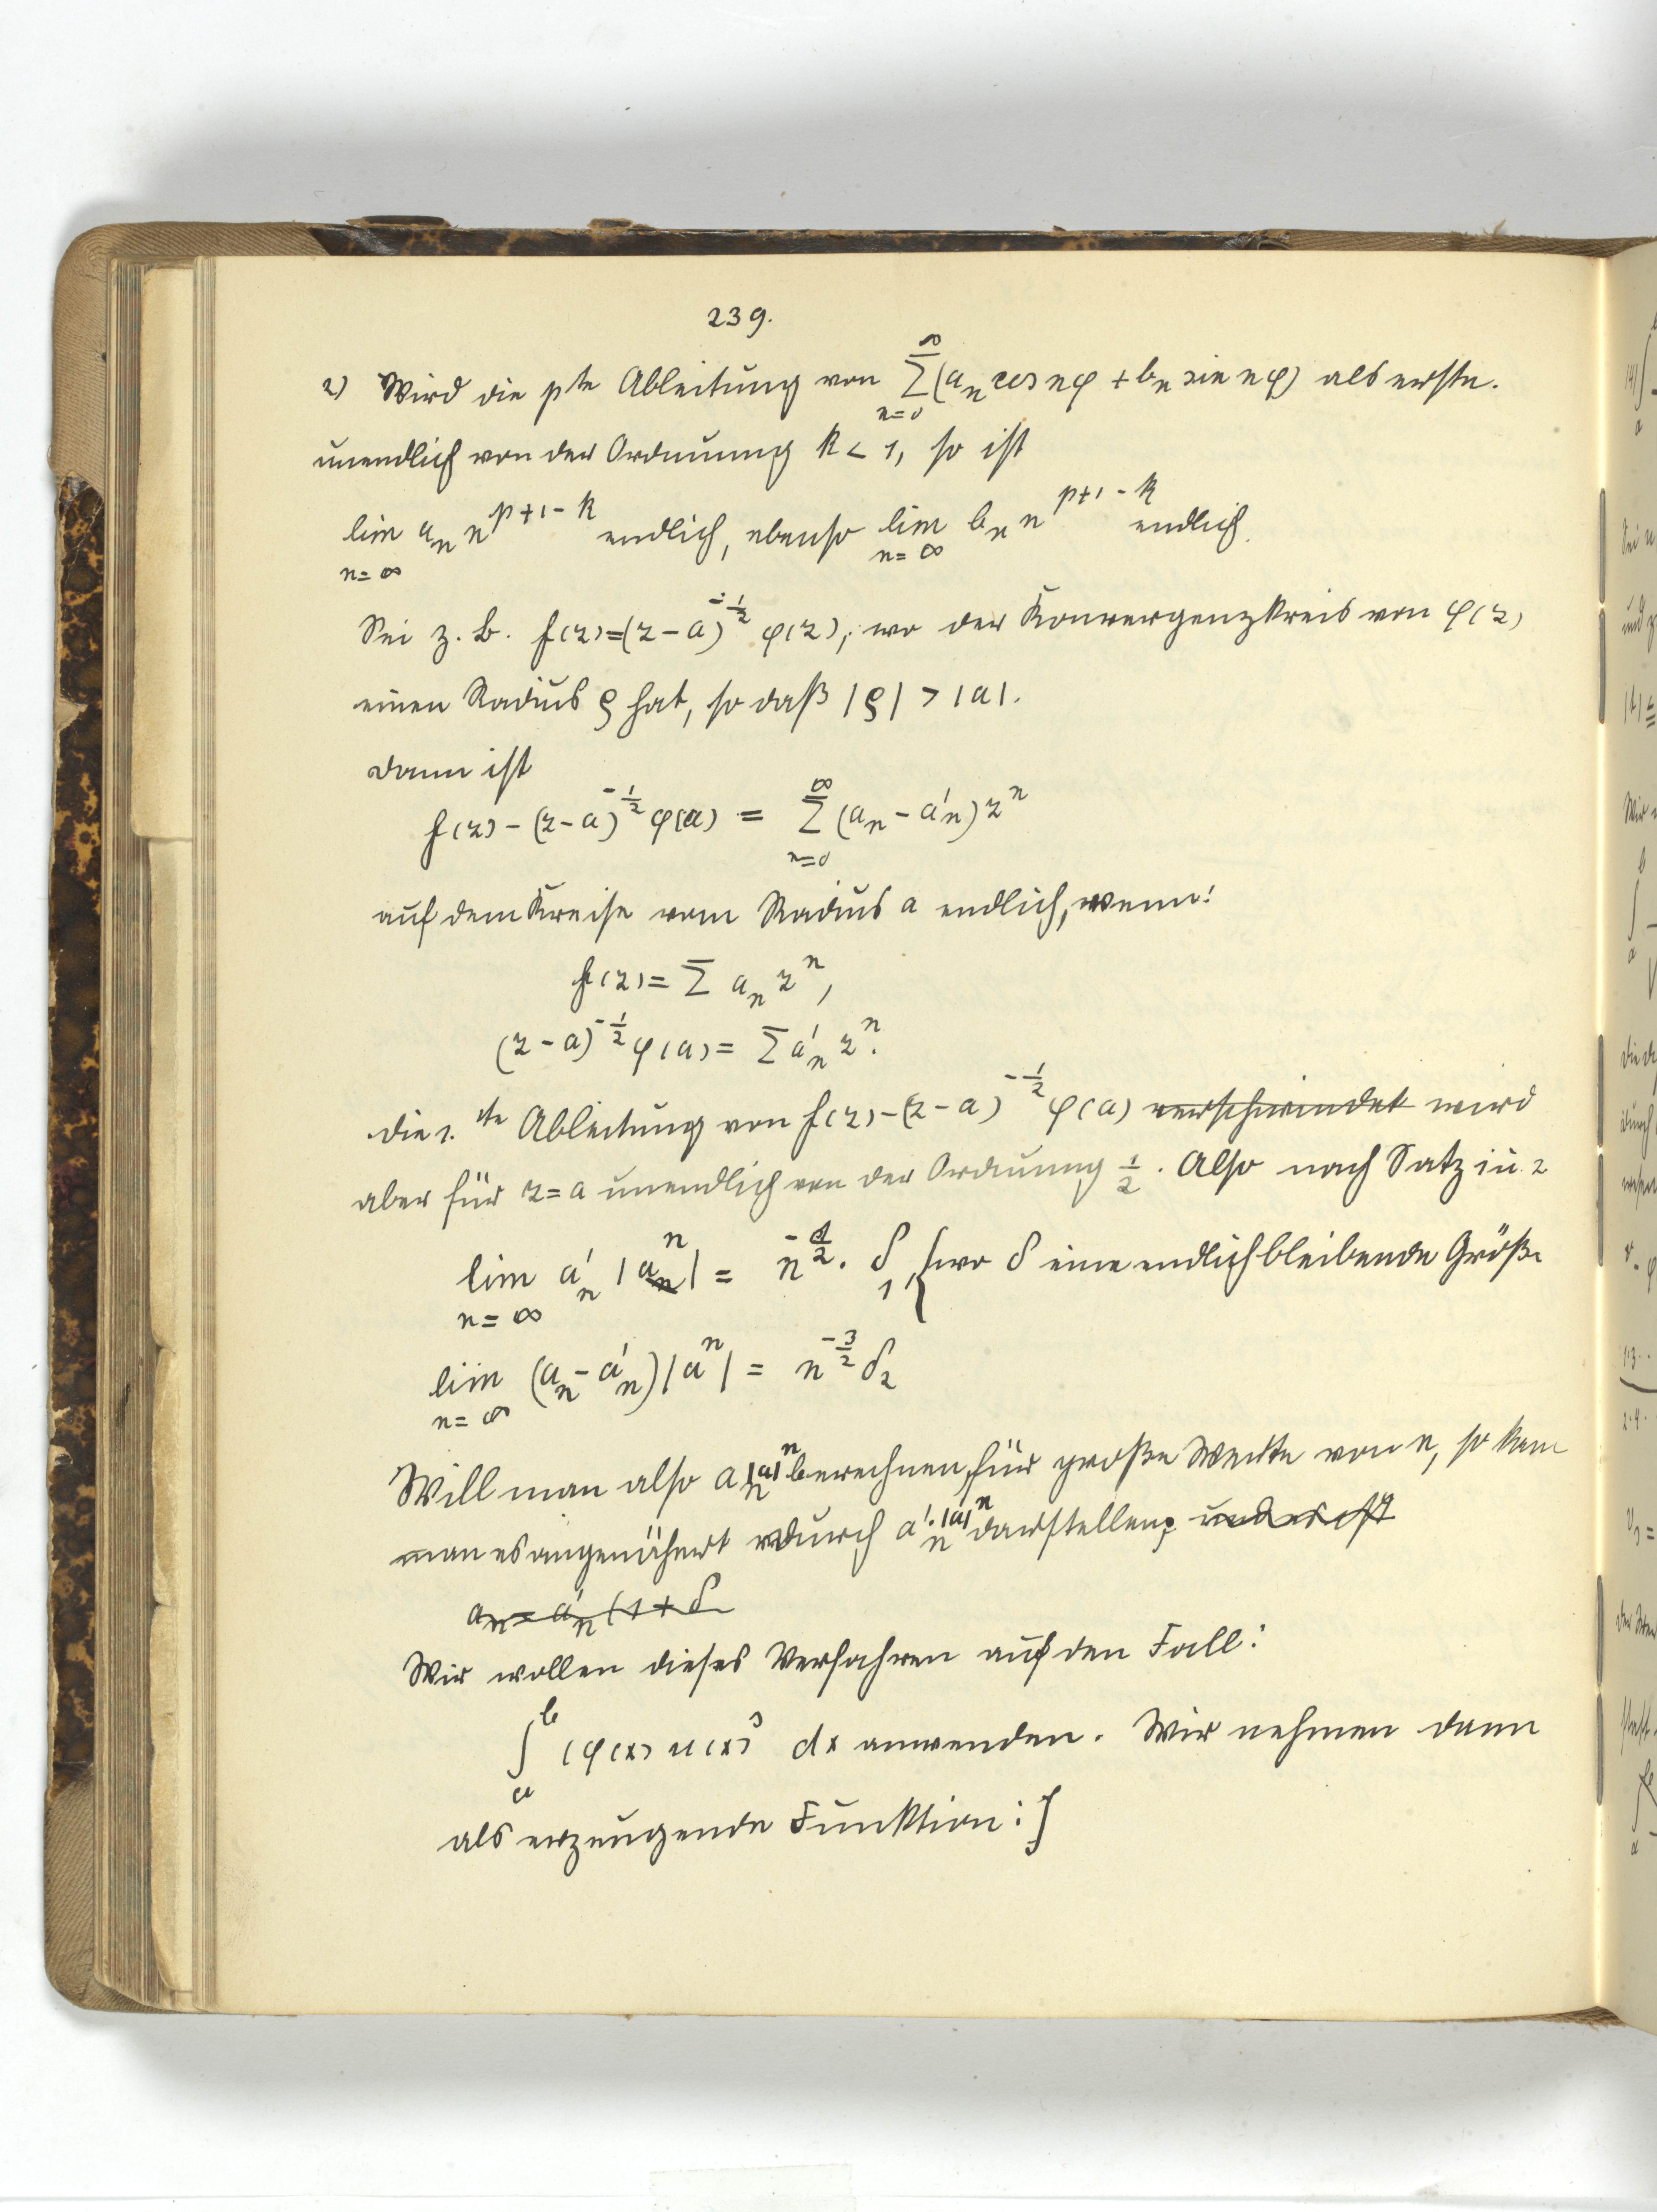 239.
2) Wird die pte Ableitung von ∑_{n=0}^{∞} (a_n cos nφ + b_n sin nφ) als erste.
unendlich von der Ordnung k < 1, so ist
lim_{n=∞} a_n n^{p+1-k} endlich, ebenso lim_{n=∞} b_n n^{p+1-k} endlich.
Sei z. B. f(z)=(z-a)^{-1/2} φ(z), wo der Konvergenzkreis von φ(z)
einen Radius ρ hat, so daß |ρ| > |a|.
dann ist
f(z) - (z-a)^{-1/2} φ(a) = ∑_{n=0}^{∞} (a_n - a'_n) z^n
auf dem Kreise vom Radius a endlich, wenn:
f(z) = ∑ a_n z^n,
(z-a)^{-1/2} φ(a) = ∑ a'_n z^n.
die 1. te Ableitung von f(z) - (z-a)^{-1/2} φ(a) verschwindet wird
aber für z=a unendlich von der Ordnung 1/2. Also nach Satz in 2
lim_{n=∞} a'_n |a^n| = n^{-1/2} · δ_1, {wo δ eine endlichbleibende Größe
lim_{n=∞} (a_n - a'_n) |a^n| = n^{-3/2} δ_2
Will man also a_n |a|^n berechnen, für große Werte von n, so kann
man es angenähert durch a'_n · |a|^n darstellen; und es ist
a_n = a'_n (1 + δ
Wir wollen dieses Verfahren auf den Fall:
∫_a^b (φ(x) u(x)^3 dx anwenden. Wir nehmen dann
als erzeugende Funktion:]